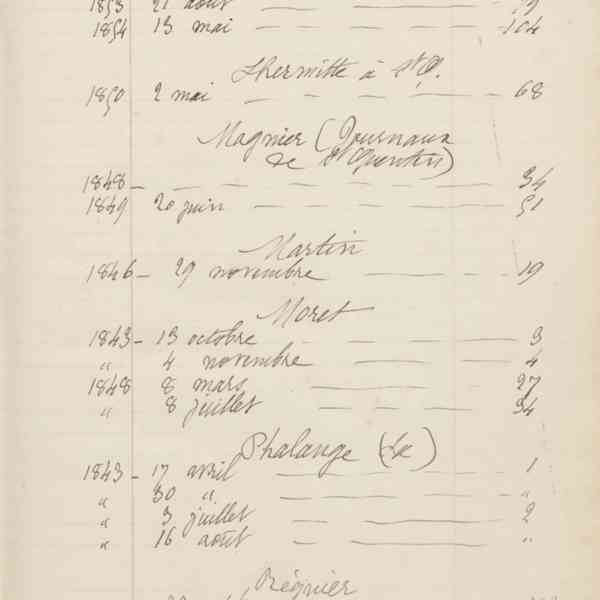 1853 21 août — — — 79
1854 13 mai — — — 104
Lhermitte à St Q.
1850 2 mai — — — 68
Magnier (Journaux
de St Quentin)
1848 — — — — 34
1849 20 juin — — — 51
Martin
1846 — 29 novembre — — 19
Moret
1843 — 13 octobre — — — 3
" 4 novembre — — — 4
1848 8 mars — — 27
" 8 juillet — — — 34
Phalange (La)
1843 — 17 avril — — — 1
" 30 " — — — "
" 3 juillet — — — 2
" 16 août — — — "
Régnier